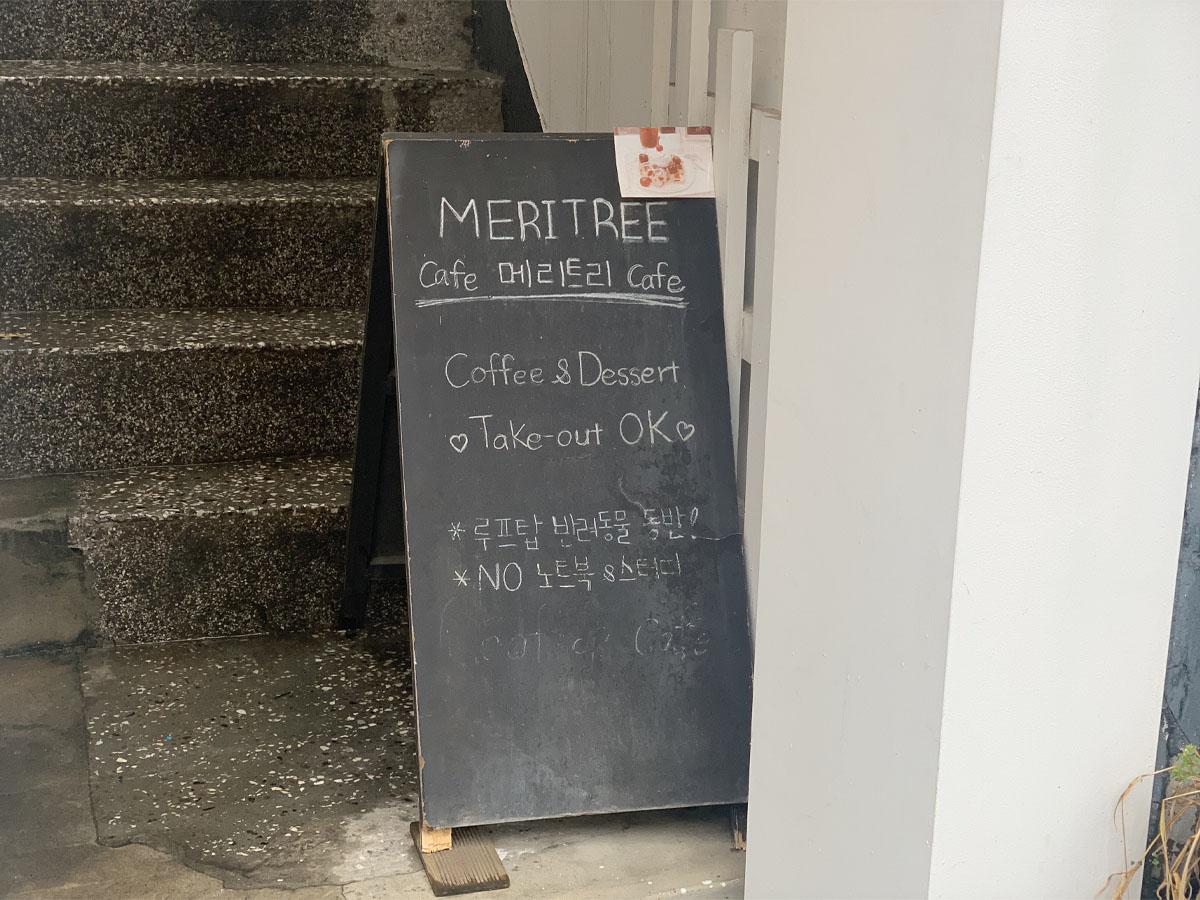 MERITREE
Cafe 메리트리 Cafe
Coffee & Dessert
♡ Take-out OK ♡
* 루프탑 반려동물 동반!
* NO 노트북 & 스터디
Cafe